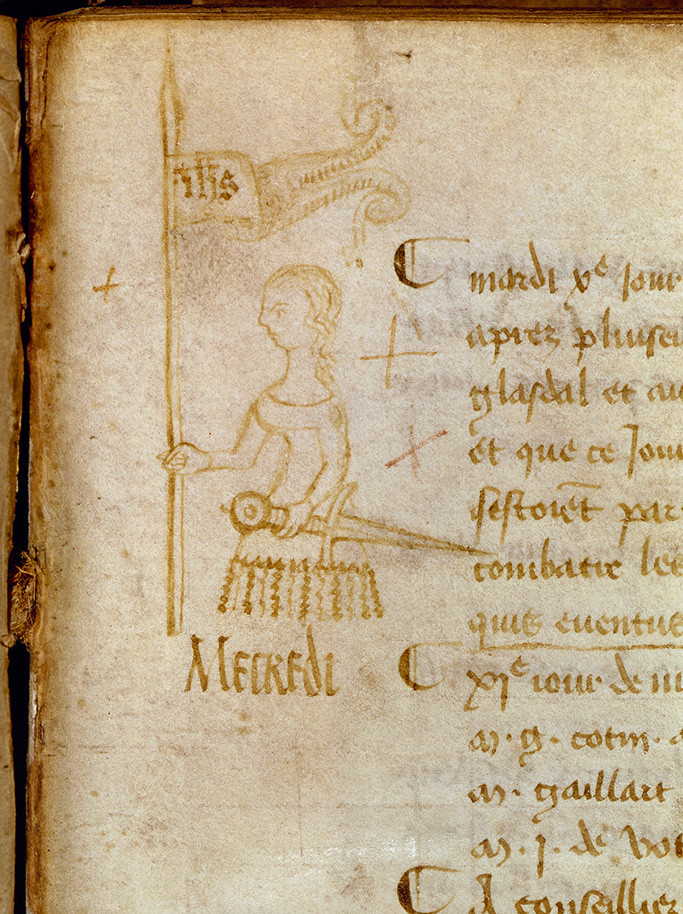 ihs
mardi xe jour
aprez pluiseu
glasdal et au
et que ce jour
sestoiẽt par
combatre les
quis euentus
Mecredi
xje iour de m
m. g. cotin.
m. gaillart
m. j. de
A conseillier